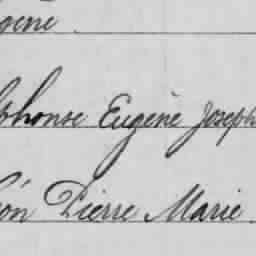 gène.
lphonse Eugène Joseph
éon Pierre Marie.